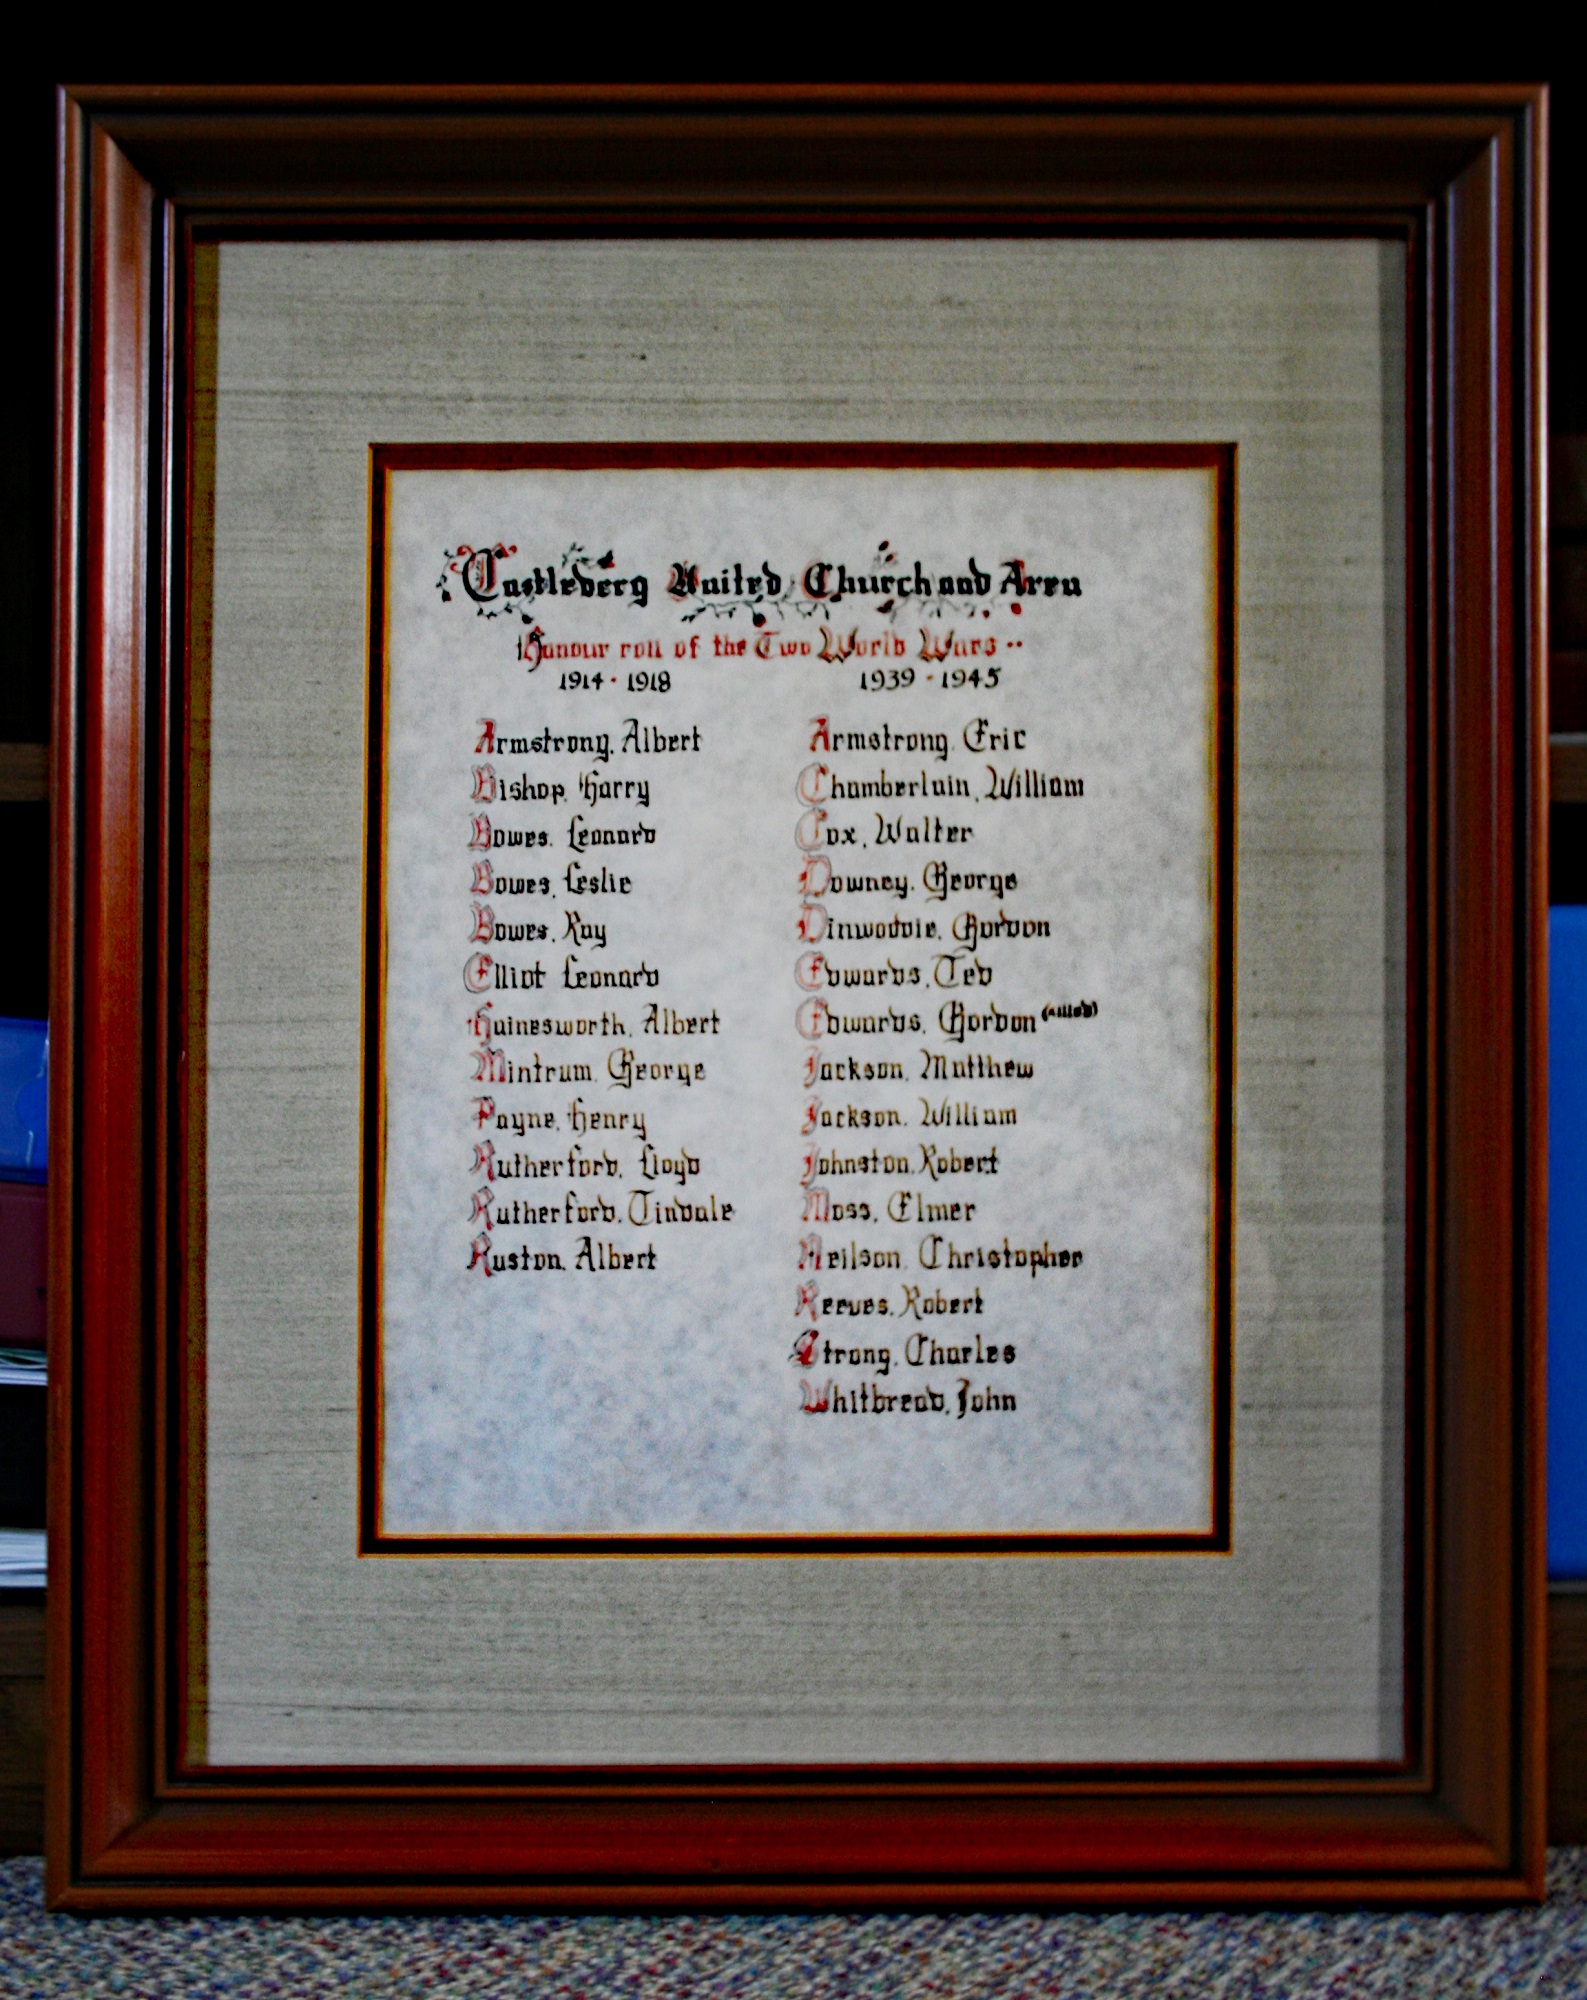 Castlederg United Church and Area
Honour roll of the Two World Wars --
1914 - 1918
Armstrong, Albert
Bishop, Harry
Bowes, Leonard
Bowes, Leslie
Bowes, Ray
Elliot Leonard
Hainesworth, Albert
Mintram, George
Payne, Henry
Rutherford, Lloyd
Rutherford, Tindale
Ruston, Albert
1939 - 1945
Armstrong, Eric
Chamberlain, William
Cox, Walter
Downey, George
Dinwoodie, Gordon
Edwards, Ted
Edwards, Gordon (killed)
Jackson, Matthew
Jackson, William
Johnston, Robert
Moss, Elmer
Neilson, Christopher
Reeves, Robert
Strong, Charles
Whitbread, John